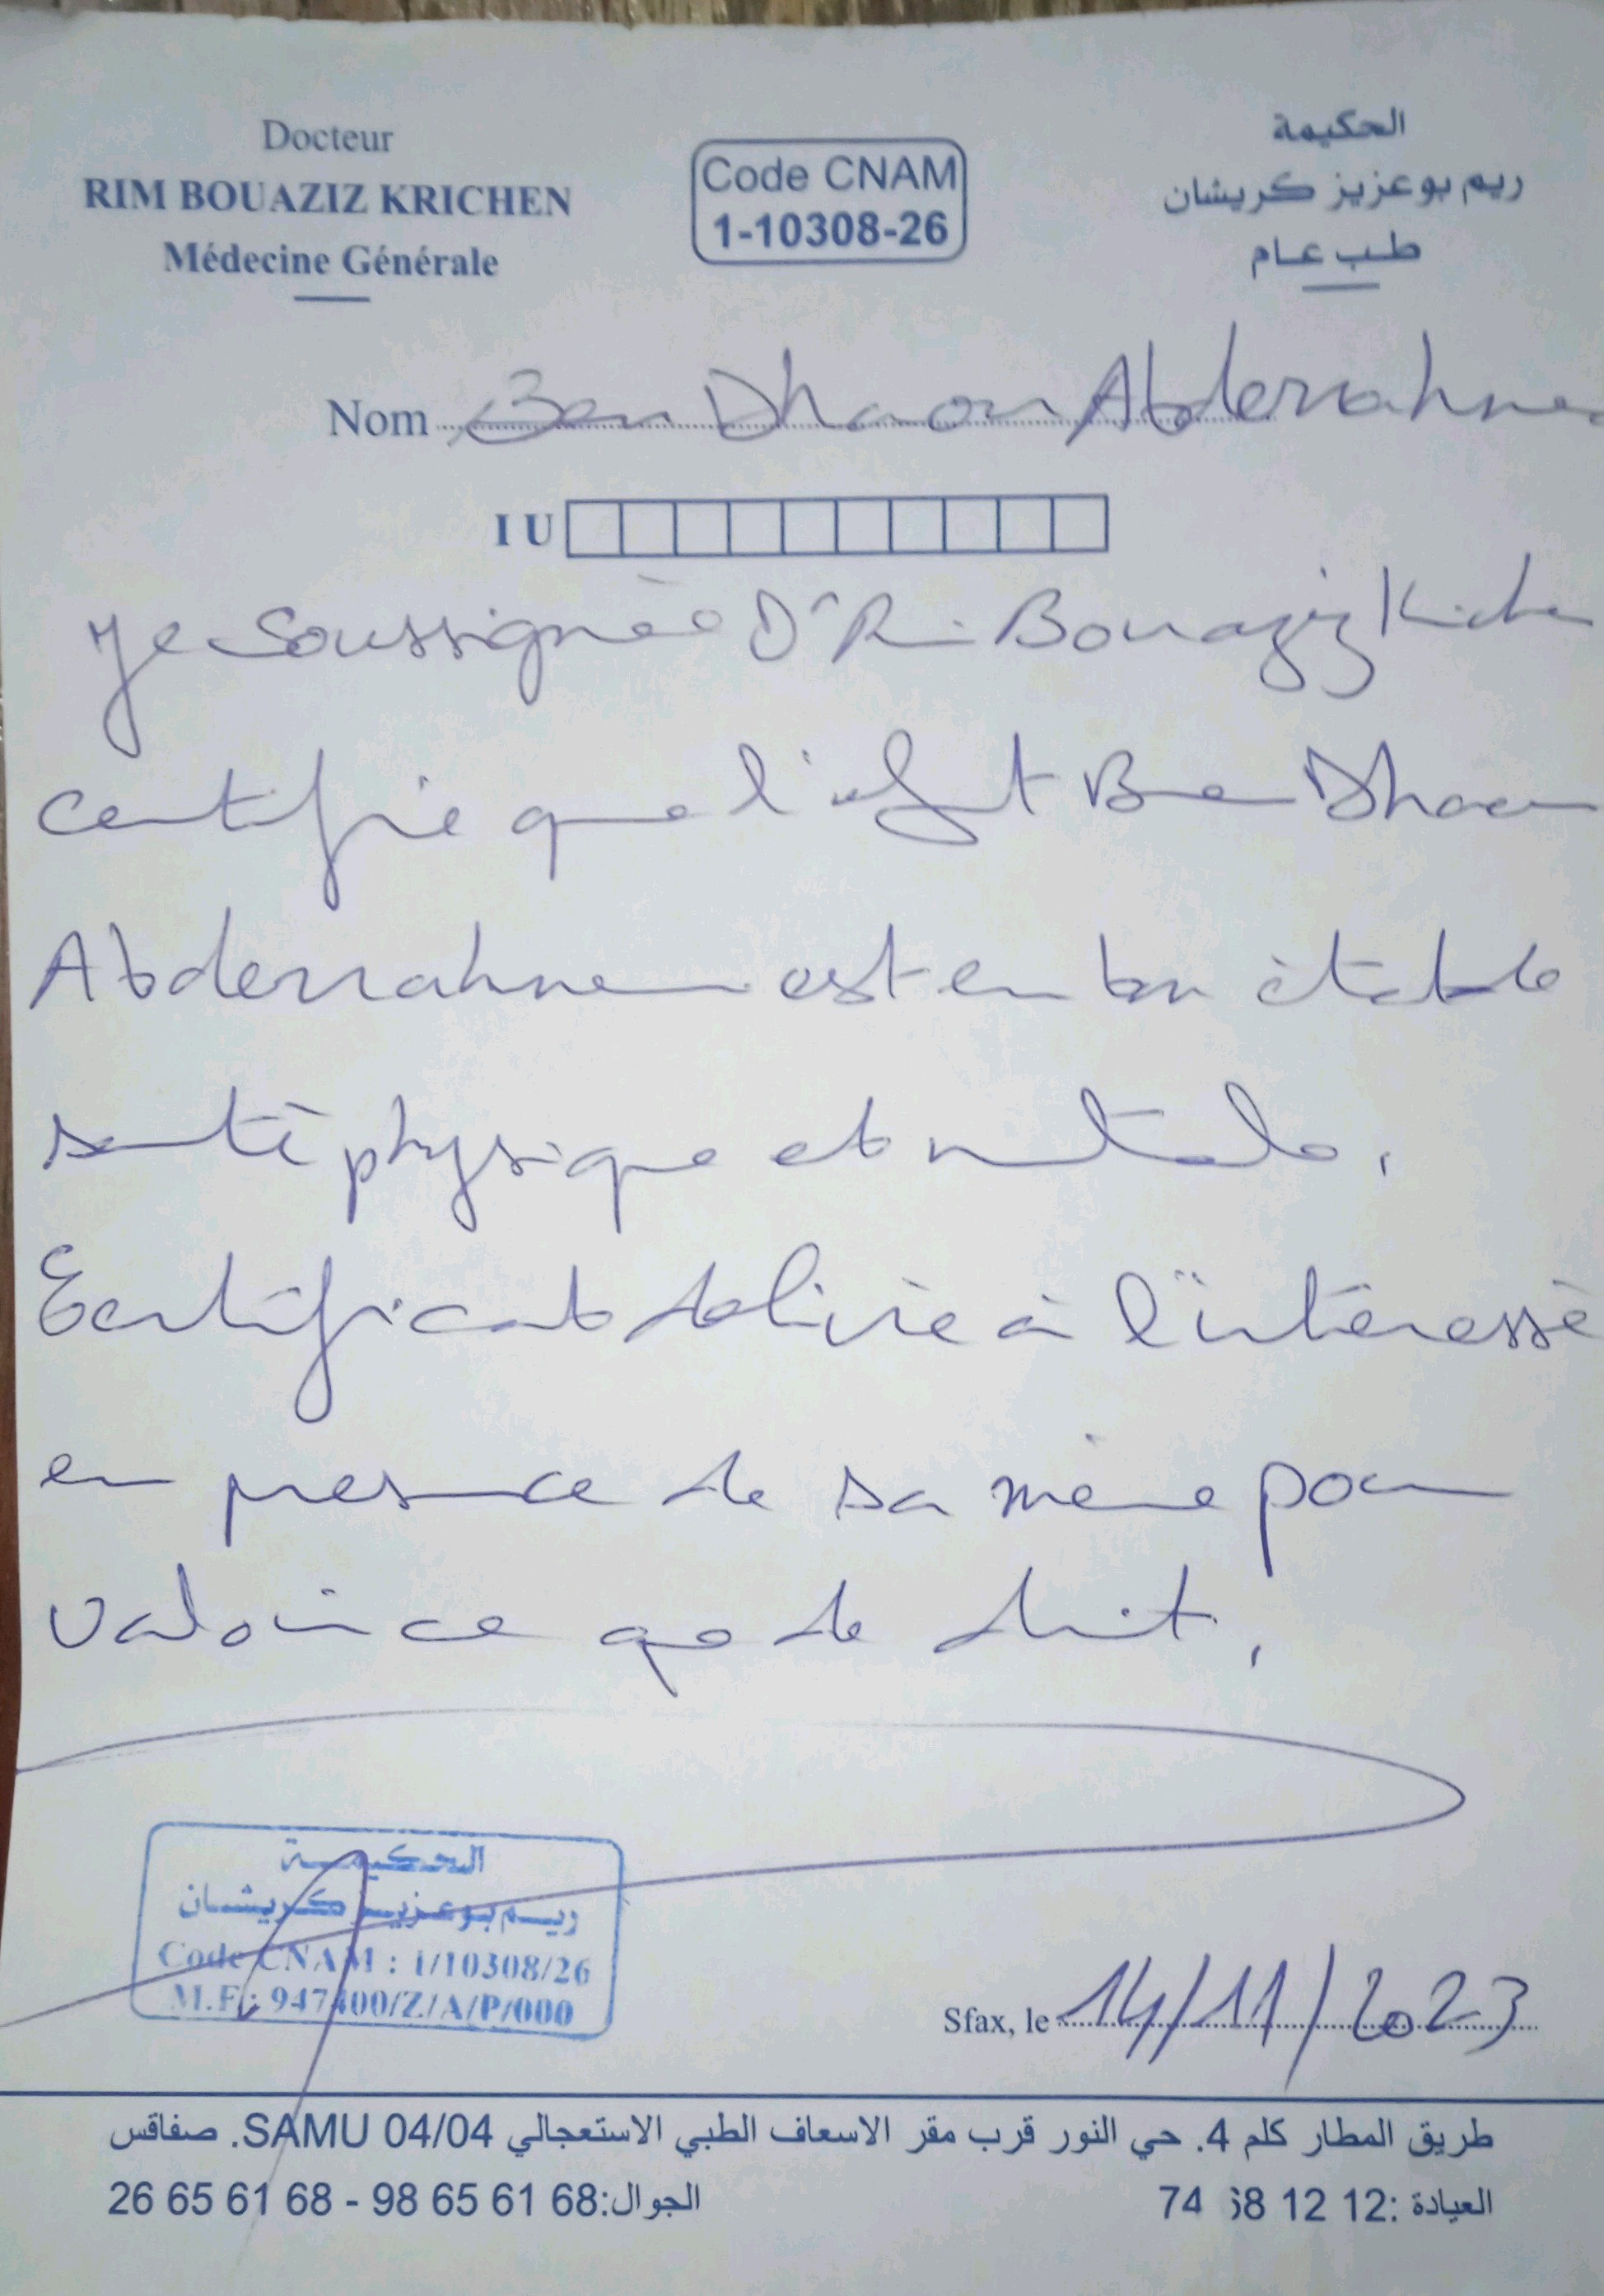 Docteur
RIM BOUAZIZ KRICHEN
Médecine Générale
Code CNAM
1-10308-26
الحكيمة
ريم بوعزيز كريشان
طب عام
Nom Ben Dhaou Abderrahmen
I U
Je soussignée Dr Rim Bouaziz Krichen
certifie que l'enfant Ben Dhaou
Abderrahmen est en bon état de
santé physique et mentale.
Certificat délivré à l'intéressé
en présence de sa mère pour
valoir ce que de droit.
الحكيمة
ريم بوعزيز كريشان
Code CNAM : 1/10308/26
M.F : 947400/Z/A/P/000
Sfax, le 14/11/2023
طريق المطار كلم 4. حي النور قرب مقر الاسعاف الطبي الاستعجالي SAMU 04/04. صفاقس
العيادة :74 68 12 12 الجوال:26 65 61 68 - 98 65 61 68